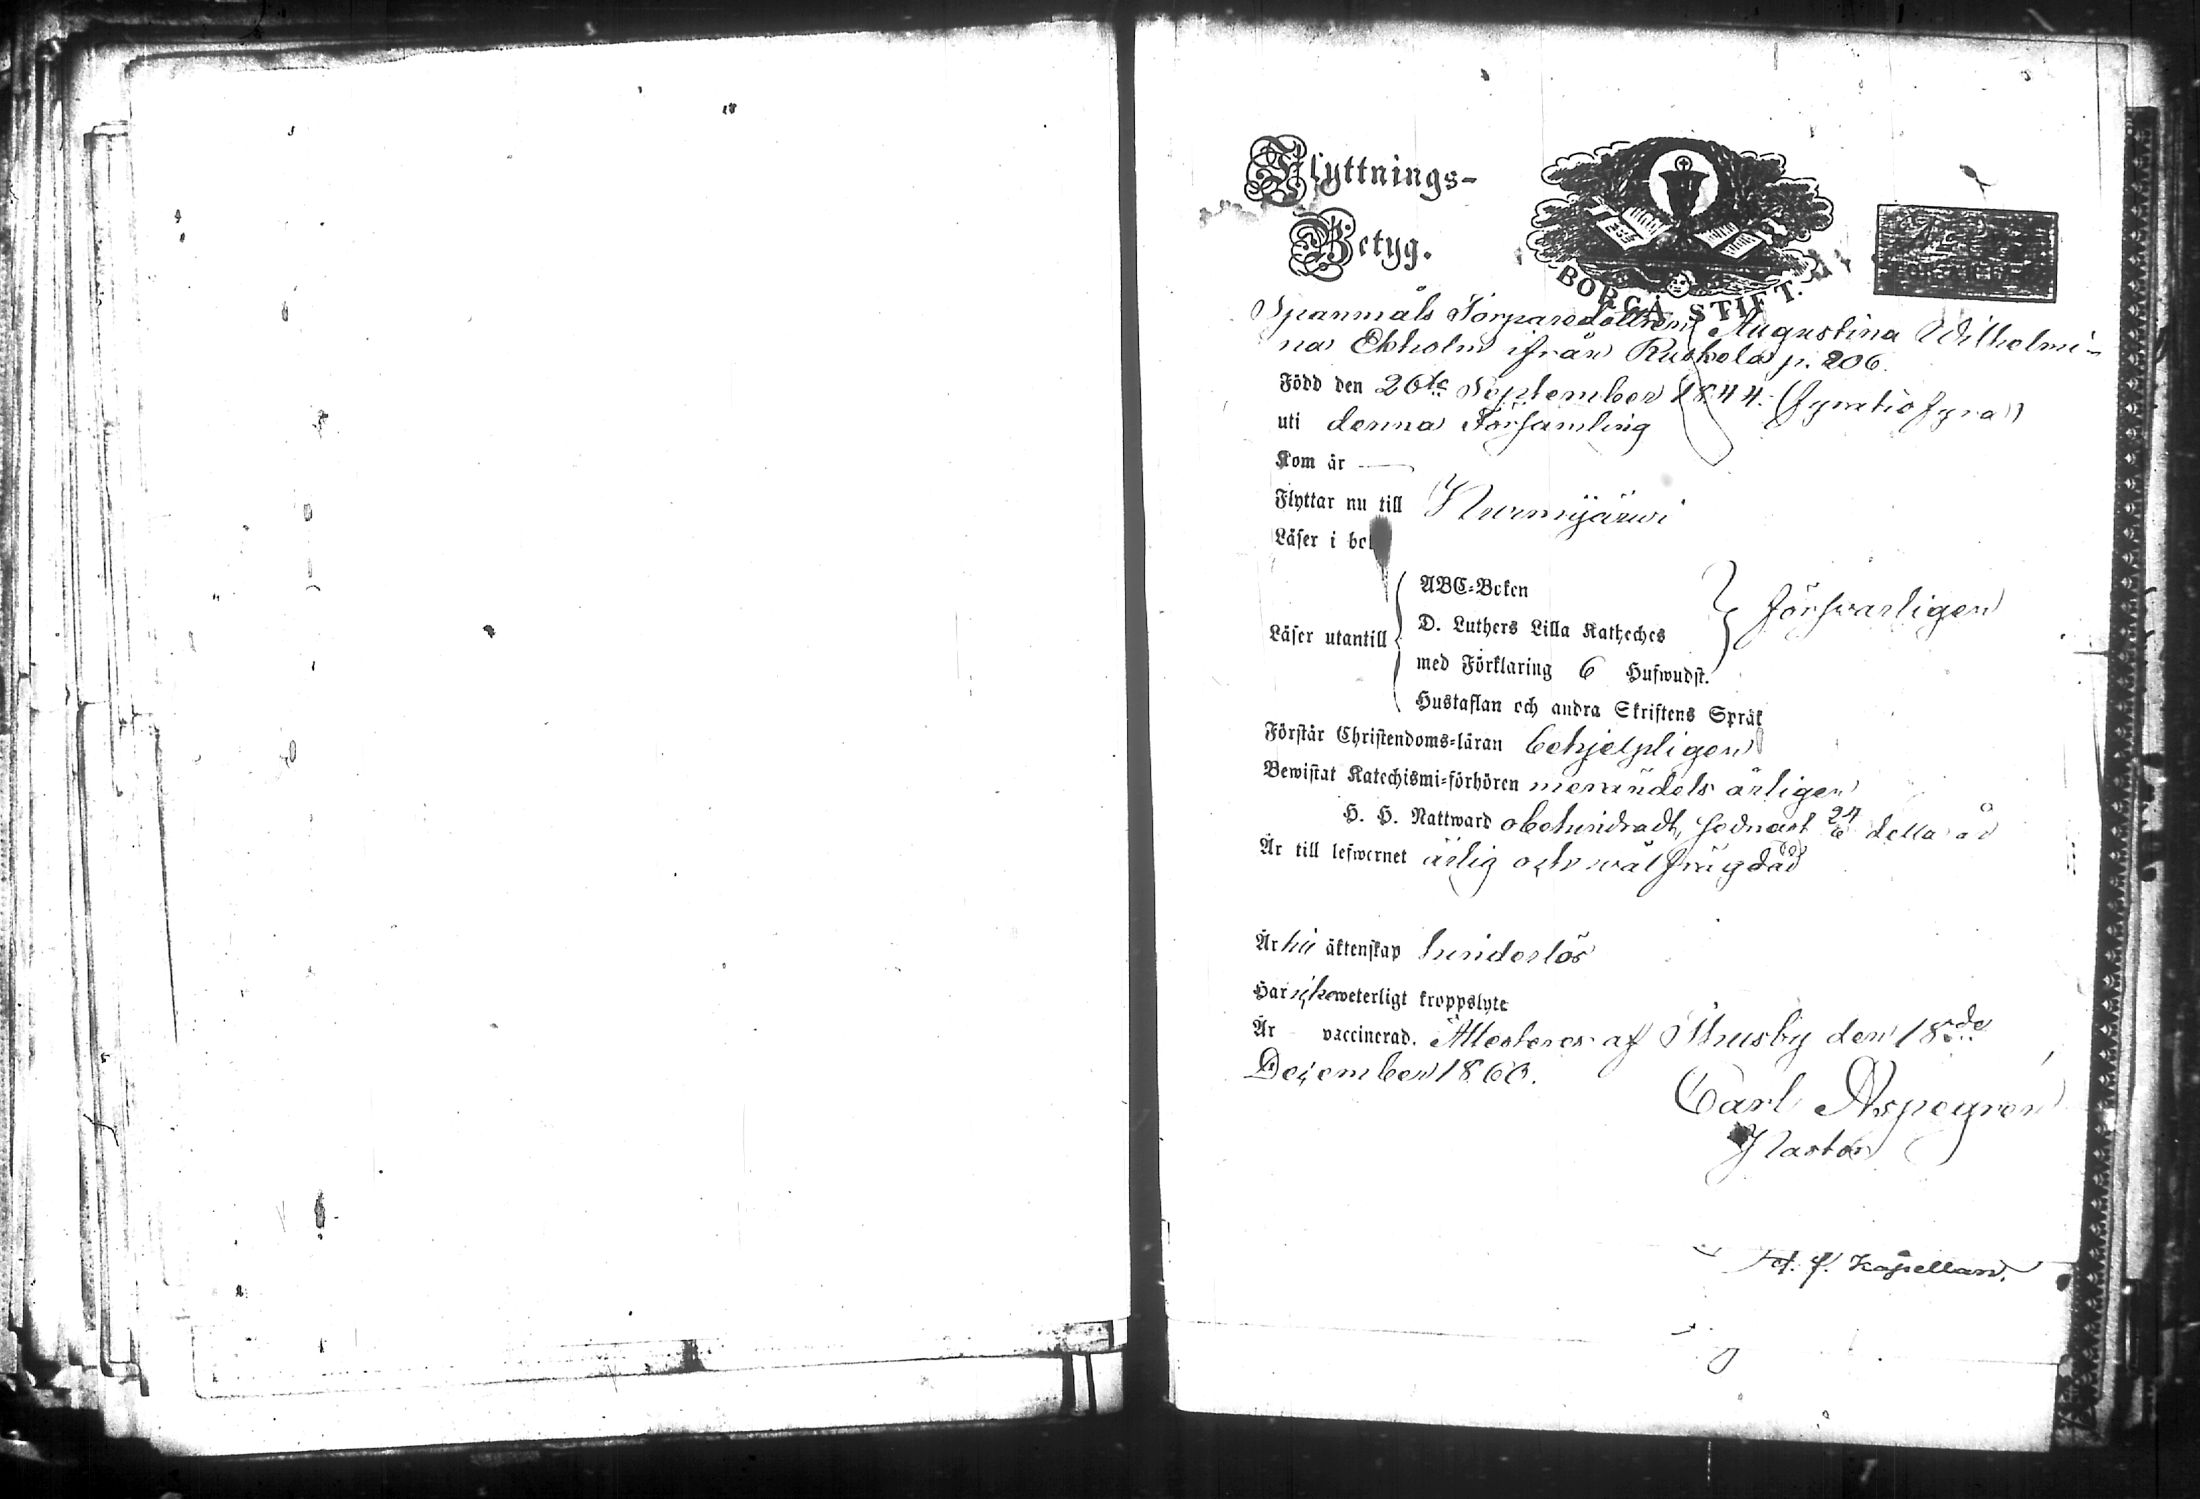 Flyttnings-
Betyg.
BORGÅ STIFT.
Spanmåls Torparedottren Augustina Wilhelmi-
na Ekholm ifrån Ruskela p. 206.
Född den 26te September 1844. (fyratiofyra)
uti denna Församling
Kom år —
Flyttar nu till Nurmijärwi
Läser i bok
ABC-Boken
D. Luthers Lilla Katheches
Läser utantill
med Förklaring 6 Hufwudst.
Hustaflan och andra Skriftens Språk
försvarligen
Förstår Christendoms-läran behjelpligen
Bewistat Katechismi-förhören merändels årligen
H. H. Nattward obehindradt, sednast 24/6 detta år
Är till lefwernet ärlig och välfrägdad
Är till äktenskap hinderlös
Har icke weterligt kroppslyte
Är vaccinerad. Attesteras af Thusby den 18de
December 1860.
Carl Aspegren
Pastor
kapellan.